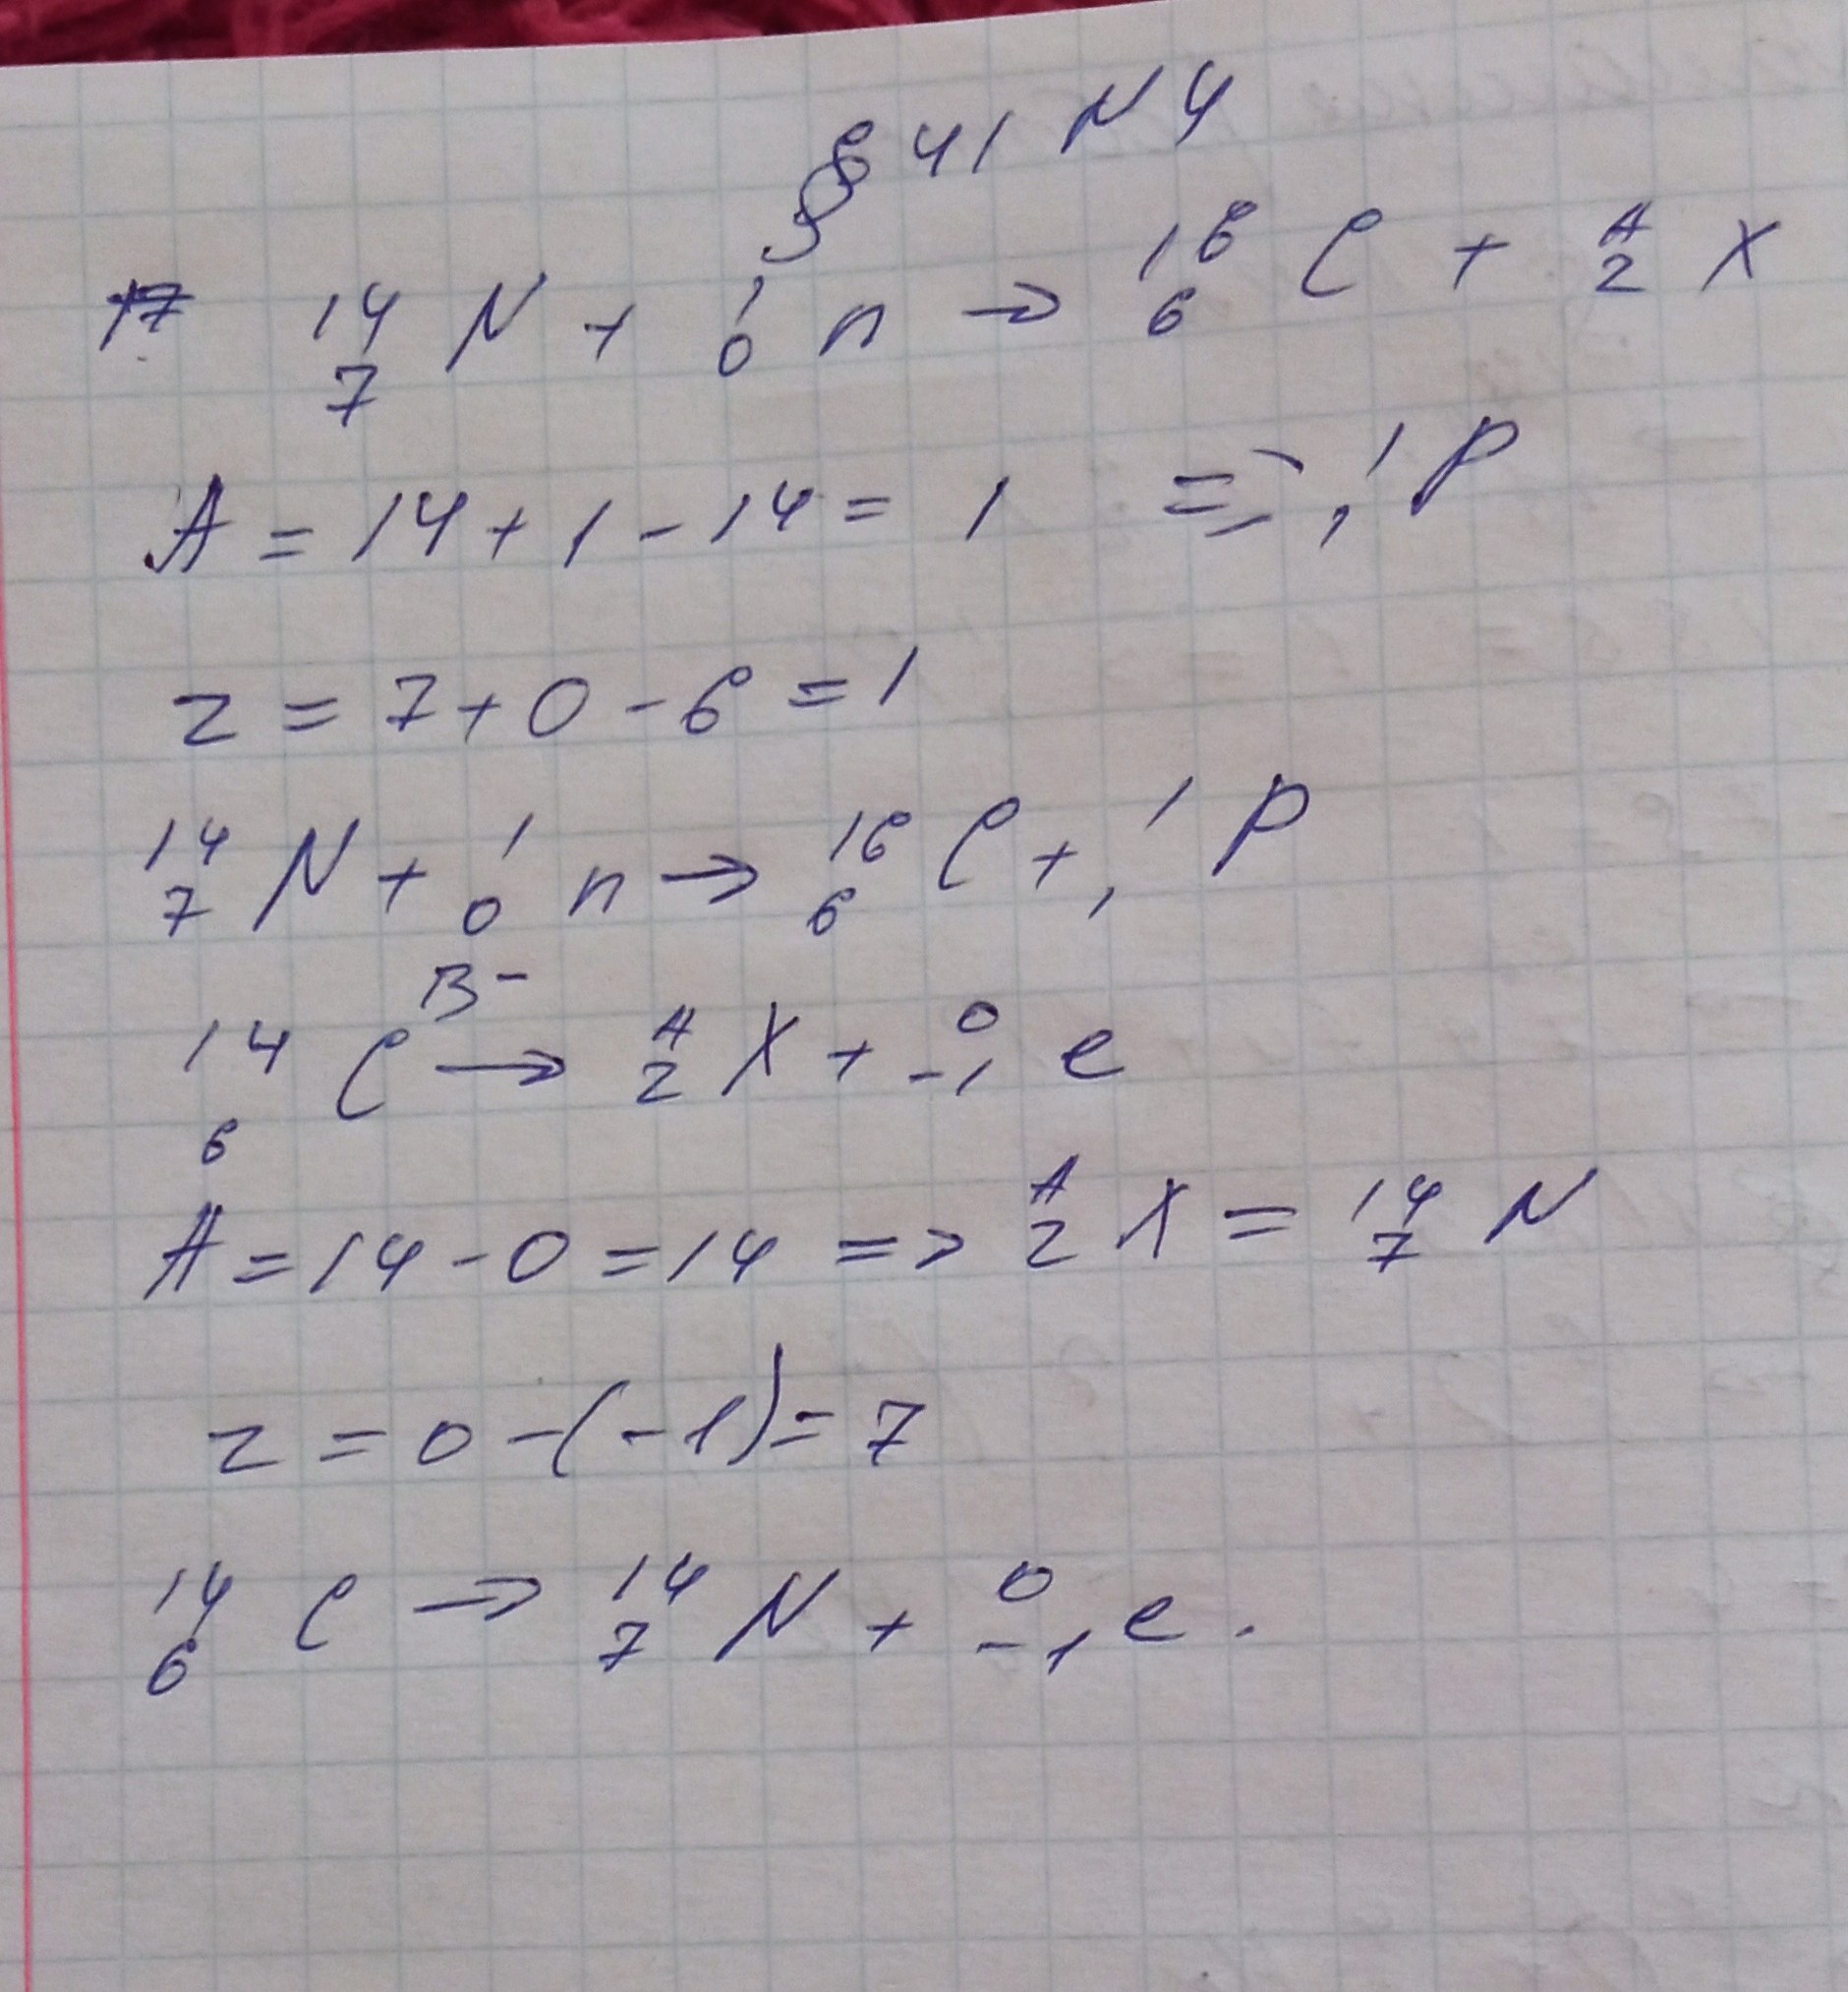 § 41 N 4
17 ¹⁴₇ N + ¹₀ n → ¹⁶₆ C + ᴬ_Z X
A = 14 + 1 - 14 = 1 => ¹₁ P
Z = 7 + 0 - 6 = 1
¹⁴₇ N + ¹₀ n → ¹⁶₆ C + ¹₁ P
¹⁴₆ C →(B-) ᴬ_Z X + ⁰₋₁ e
A = 14 - 0 = 14 => ᴬ_Z X = ¹⁴₇ N
Z = 0 - (-1) = 7
¹⁴₆ C → ¹⁴₇ N + ⁰₋₁ e.